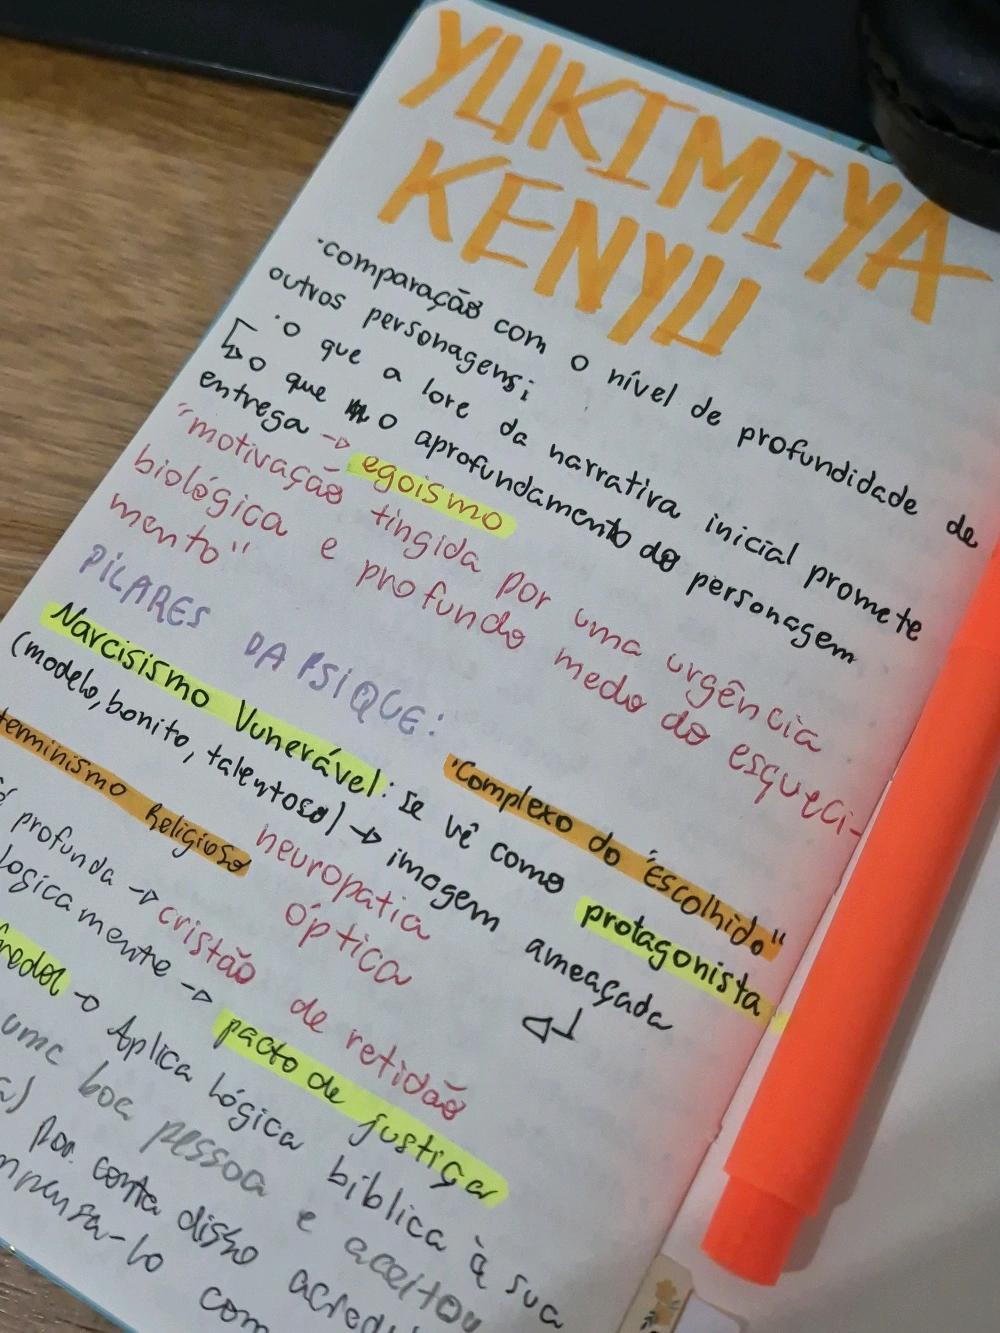 YUKIMIYA
KENYU
·comparação com o nível de profundidade de
outros personagens;
·o que a lore da narrativa inicial promete
↳o que o aprofundamento do personagem
entrega → egoismo
"motivação tingida por uma urgência
biológica e profundo medo do esqueci-
mento"
PILARES DA PSIQUE:
"Complexo do "Escolhido"
Narcisismo Vunerável: se vê como protagonista
(modelo, bonito, talentoso) → imagem ameaçada
neuropatia
óptica
terminismo Religioso
profunda → cristão de retidão
logicamente → pacto de justiça
→ Aplica lógica bíblica à sua
uma boa pessoa e aceitou
por conta disso
com